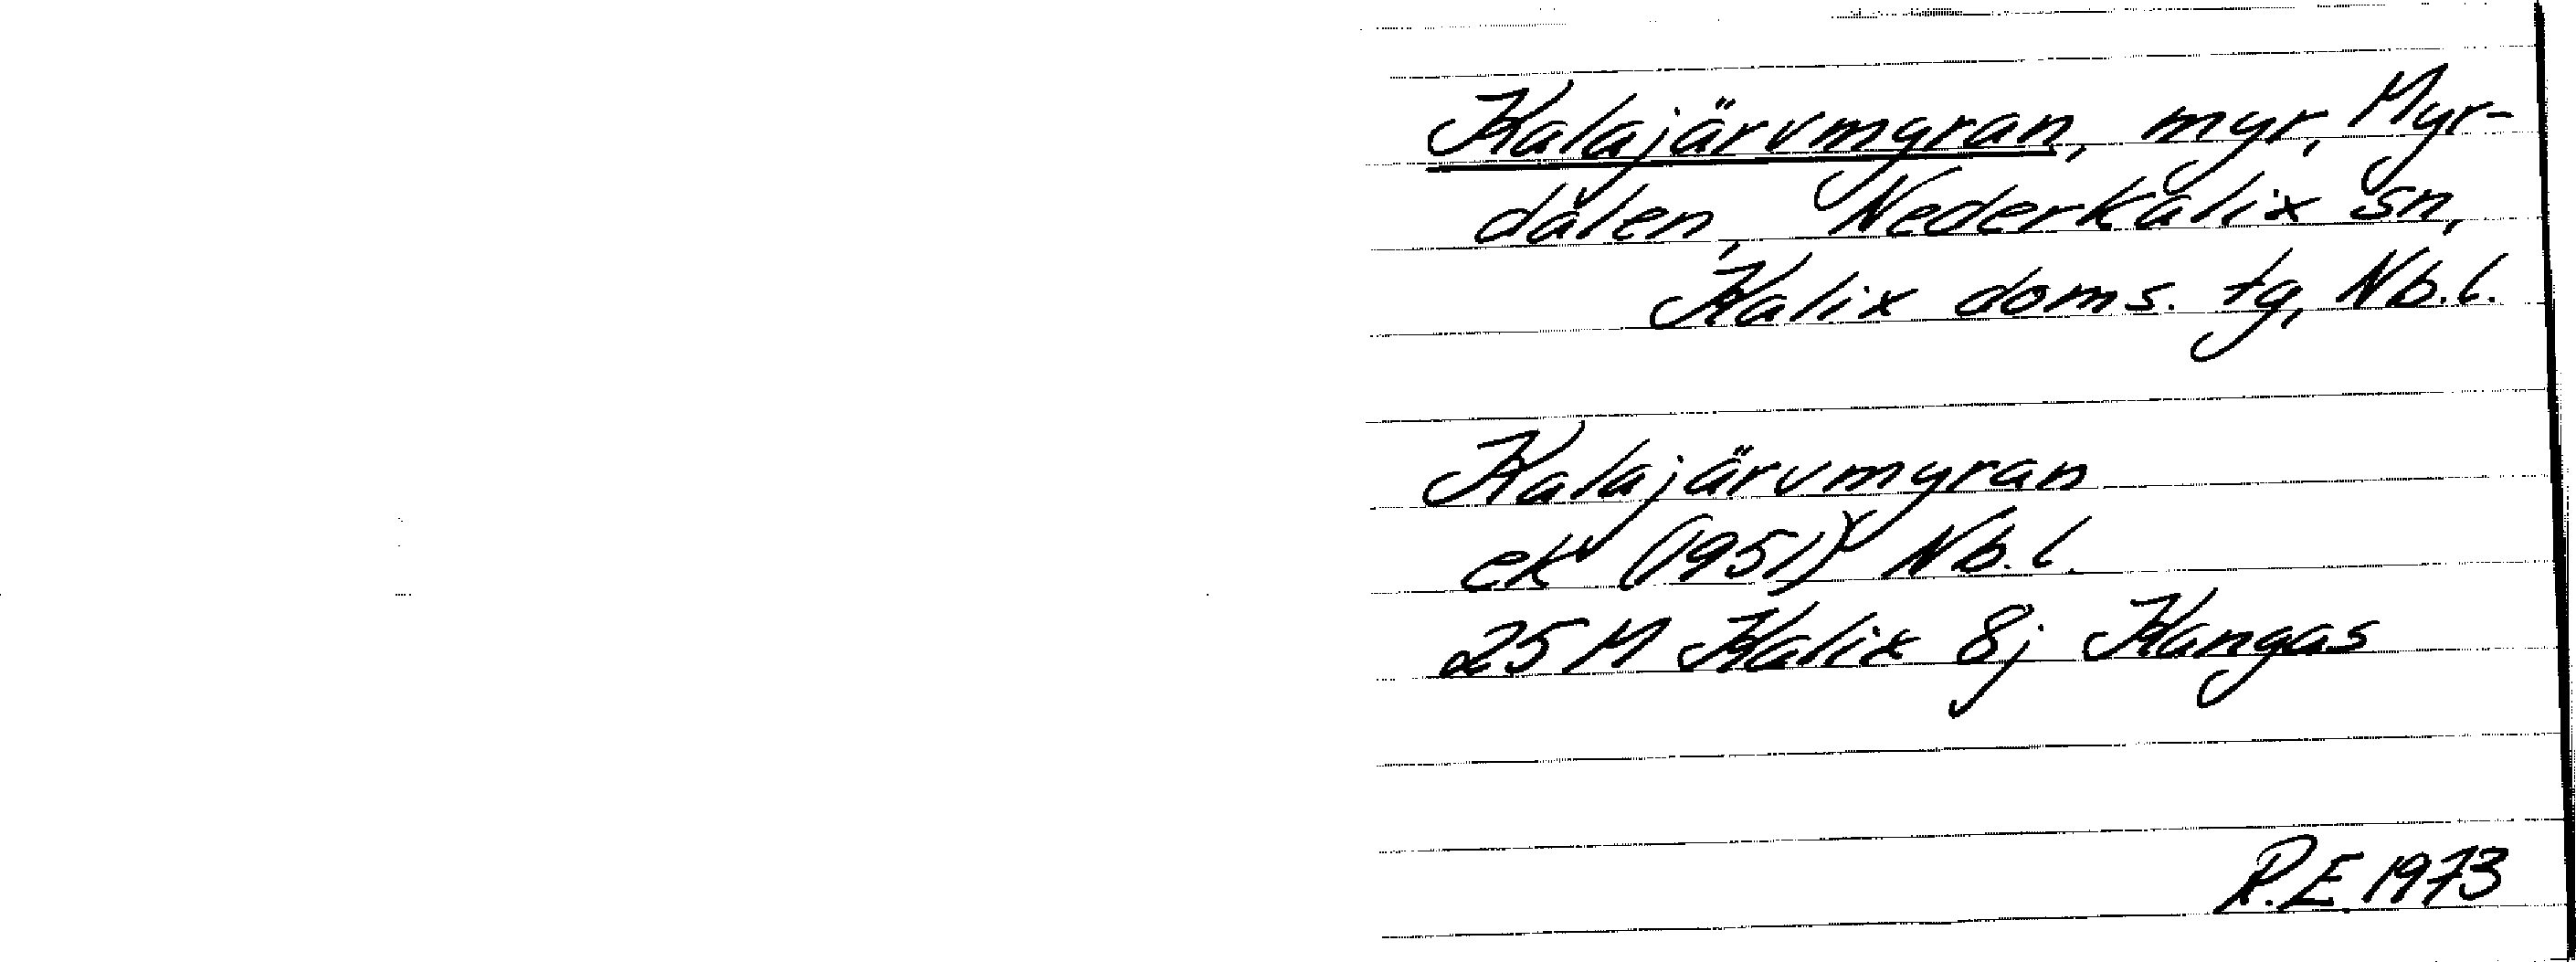 Kalajärvmyran, myr, Myr-
dalen, Nederkalix sn,
Kalix doms. tg, Nb.l.
Kalajärvmyran
ek (1951) Nb.l.
25 M Kalix 8j Kangas
R.E. 1973